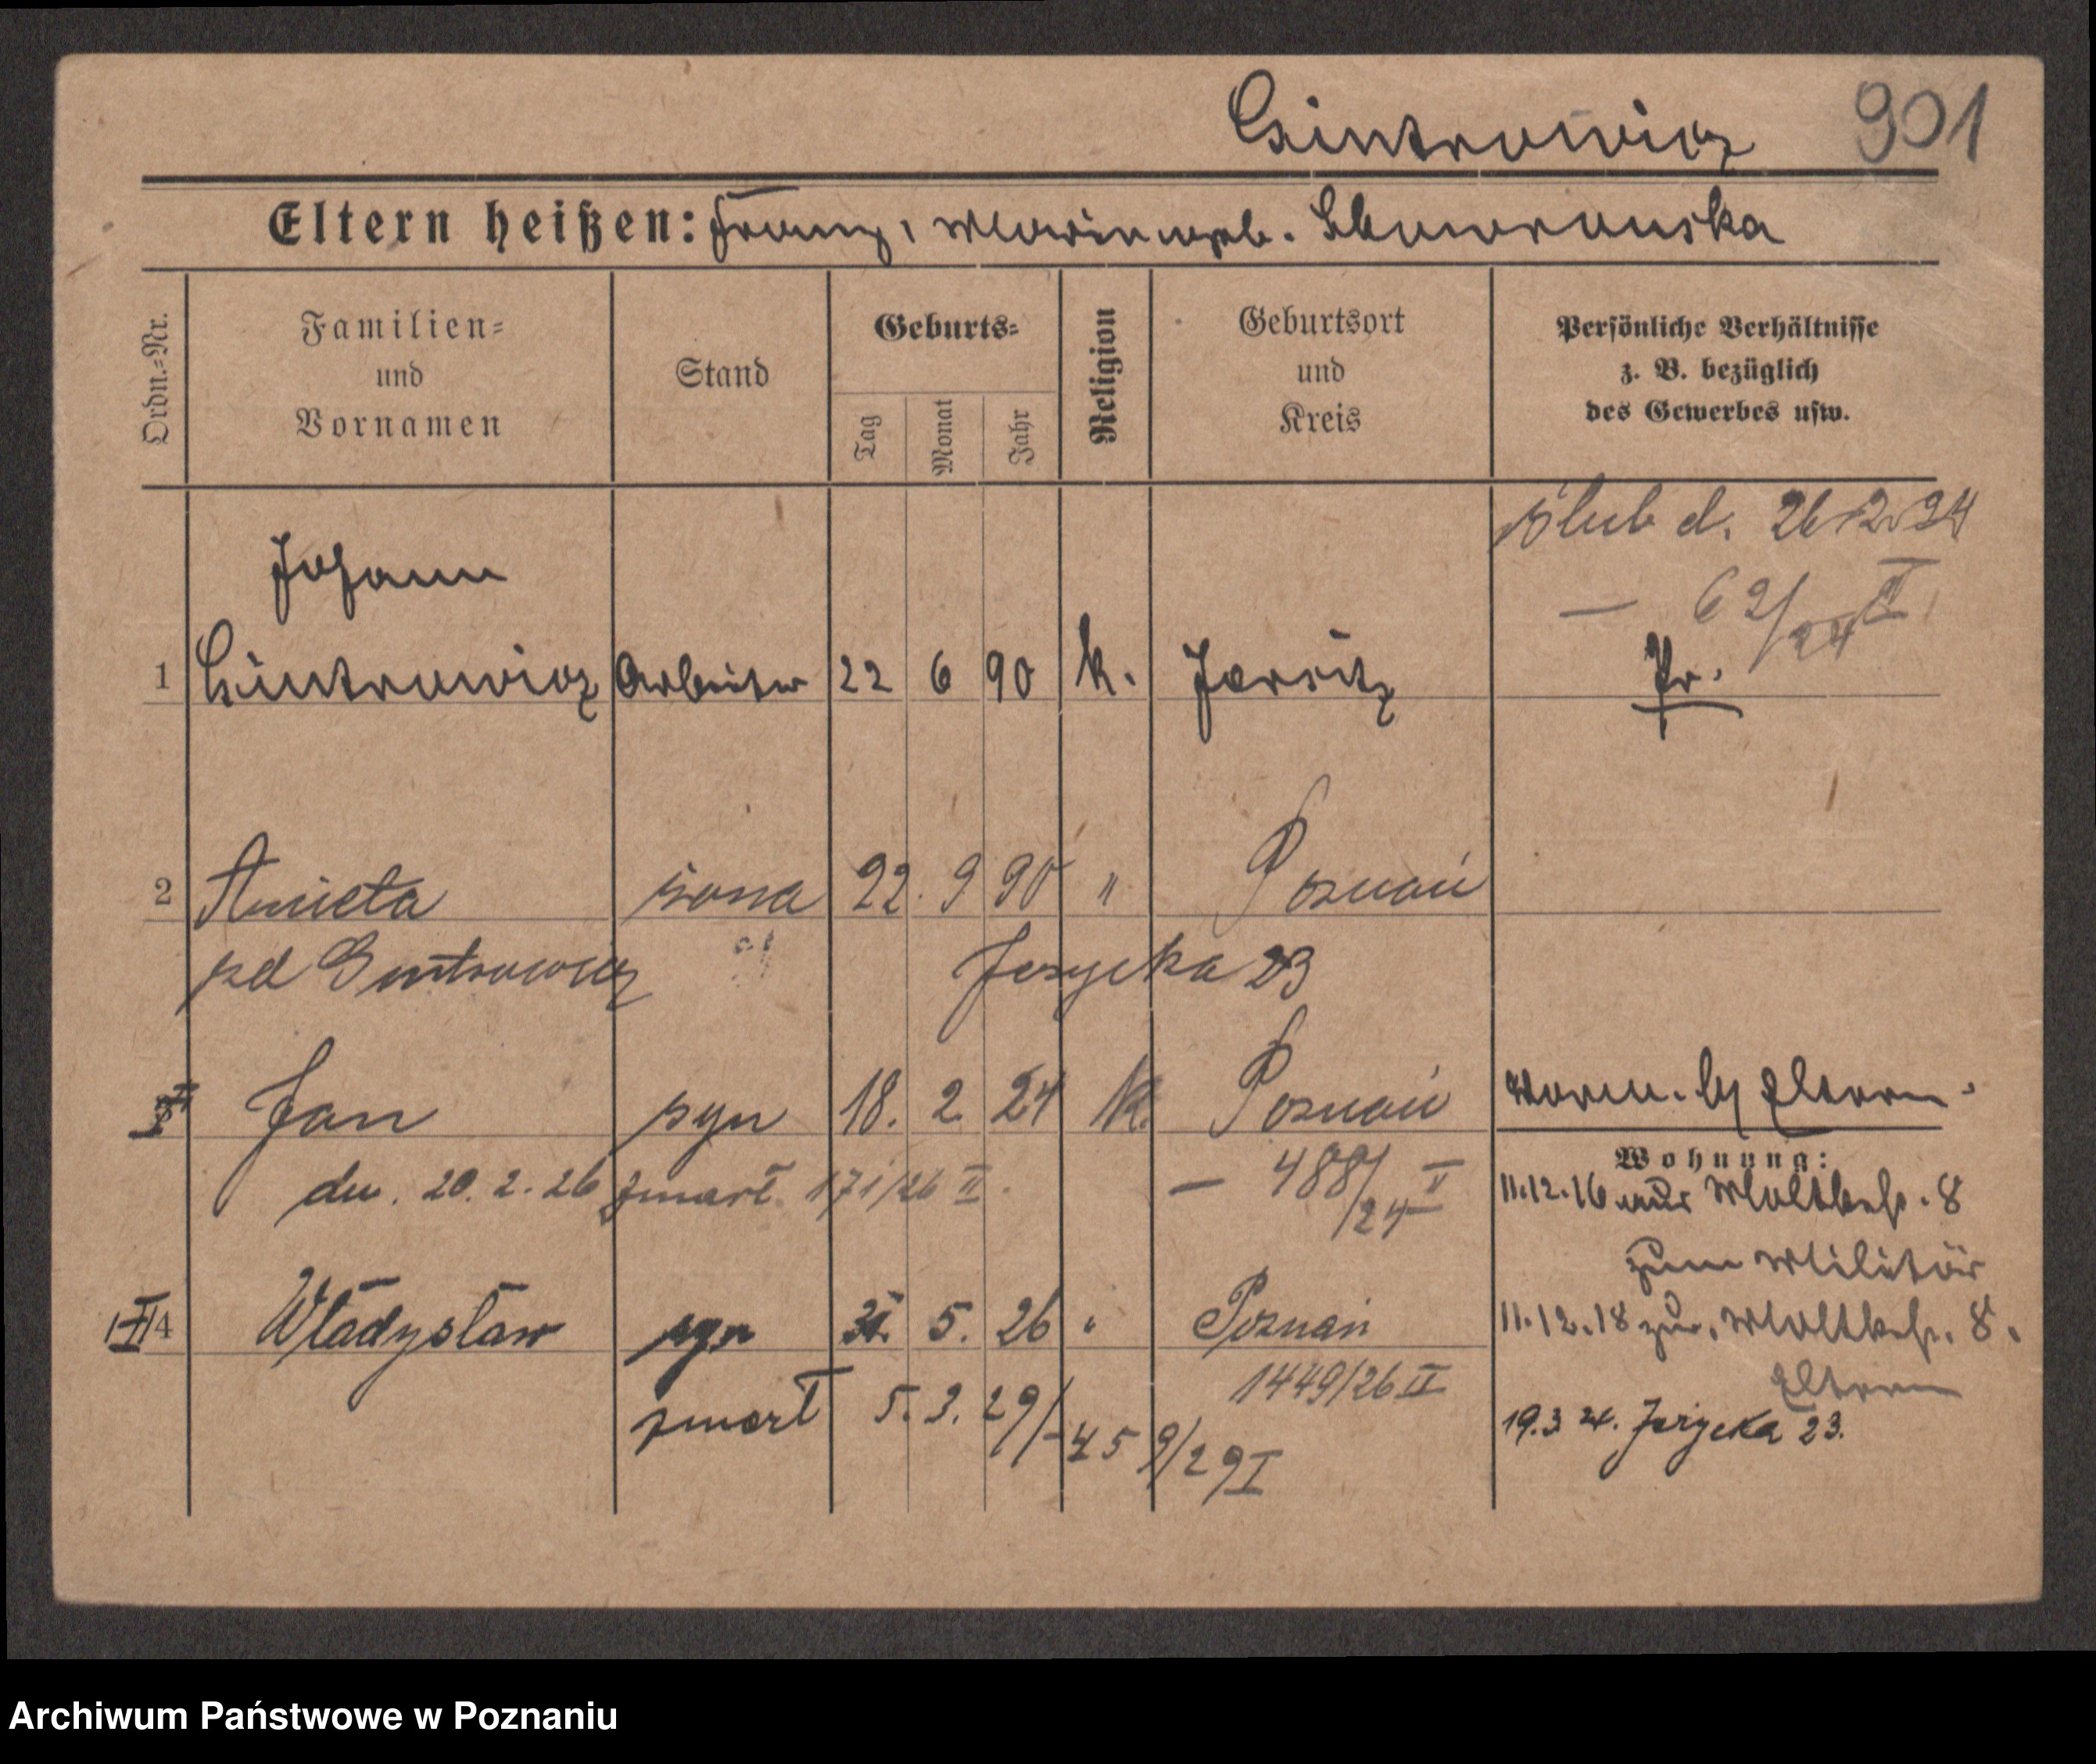 901
Eltern heißen: Franz, Maria geb.
Ordn.-Nr.
Familien-
und
Vornamen
Stand
Geburts-
Tag
Monat
Jahr
Religion
Geburtsort
und
Kreis
Persönliche Verhältnisse
z. B. bezüglich
des Gewerbes usw.
ślub d. 26.2.24
— 62/24 II
Johann
1 Arbeiter 22 6 90 k. Jersitz Pr.
2 Anieta żona 22. 9 90 " Poznań
Jeżycka 23
Jan syn 18. 2 24 k. Poznań
vorm. by Eltern
Wohnung:
dn. 20.2.26 zmarł 171/26 II.
— 488/24 II
11.12.16 aus Moltkestr. 8
zum Militär
4 Władysław syn 5. 26 " Poznań
11.12.18 zur. Moltkestr. 8.
Eltern
1449/26 II
zmarł 5.3.29/-459/29 I
19.3 24. Jeżycka 23.
Archiwum Państwowe w Poznaniu